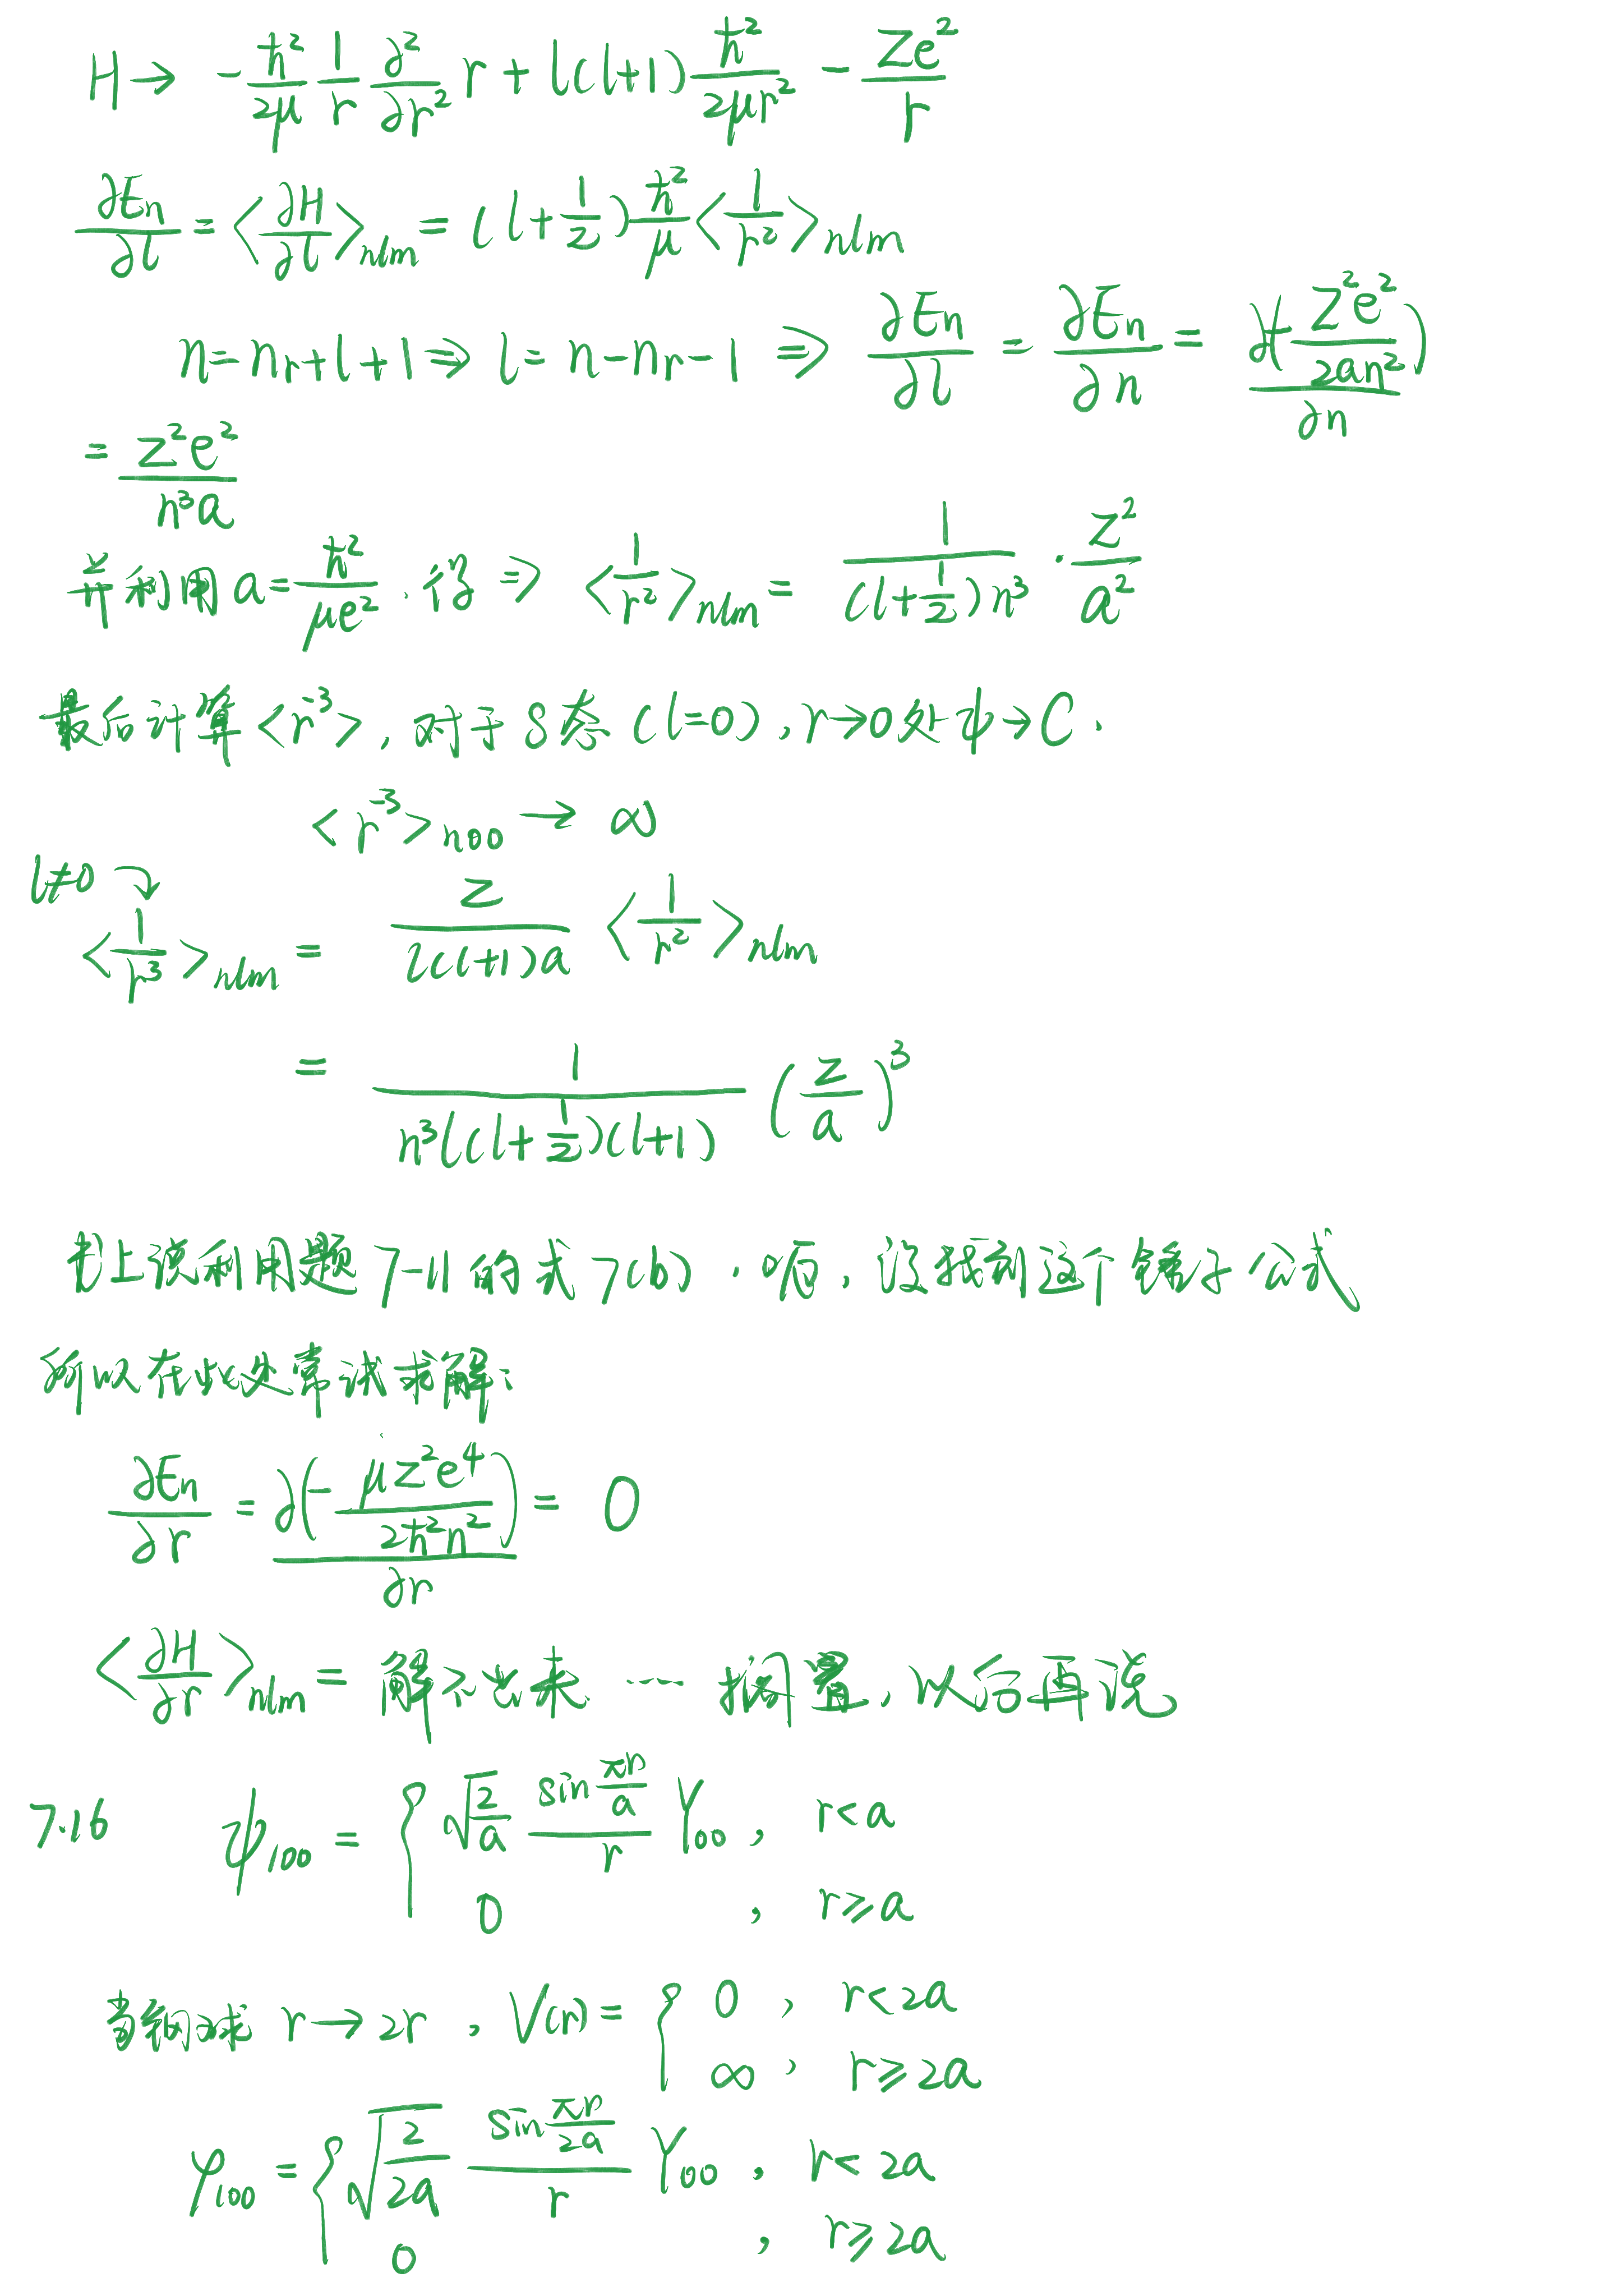 H → -ħ²/2μ 1/r ∂²/∂r² r + l(l+1) ħ²/2μr² - Ze²/r
∂En/∂l = <∂H/∂l>nlm = (l+1/2) ħ²/μ <1/r²>nlm
n = nr+l+1 ⇒ l = n-nr-1 ⇒ ∂En/∂l = ∂En/∂n = ∂(-Z²e²/2an²)/∂n
= Z²e²/n³a
并利用 a = ħ²/μe² , 得 ⇒ <1/r²>nlm = 1/(l+1/2)n³ · Z²/a²
最后计算 <r⁻³>, 对于 S态 (l=0), r→0 处 ψ→C.
<r⁻³>n00 → ∞
l≠0
<1/r³>nlm = Z/l(l+1)a <1/r²>nlm
= 1/n³l(l+1/2)(l+1) (Z/a)³
书上说利用题 7-11 的式 7(b), 呃, 没找到这个锤子公式
所以在此处尝试求解:
∂En/∂r = ∂(-μZ²e⁴/2ħ²n²)/∂r = 0
<∂H/∂r>nlm = 解不出来 ... 搁置, 以后再说
7.16 ψ100 = { √(2/a) sin(πr/a)/r Y00 , r<a
0 , r≥a
当钢球 r→2r , V(r) = { 0 , r<2a
∞ , r≥2a
φ100 = { √(2/2a) sin(πr/2a)/r Y00 , r<2a
0 , r≥2a